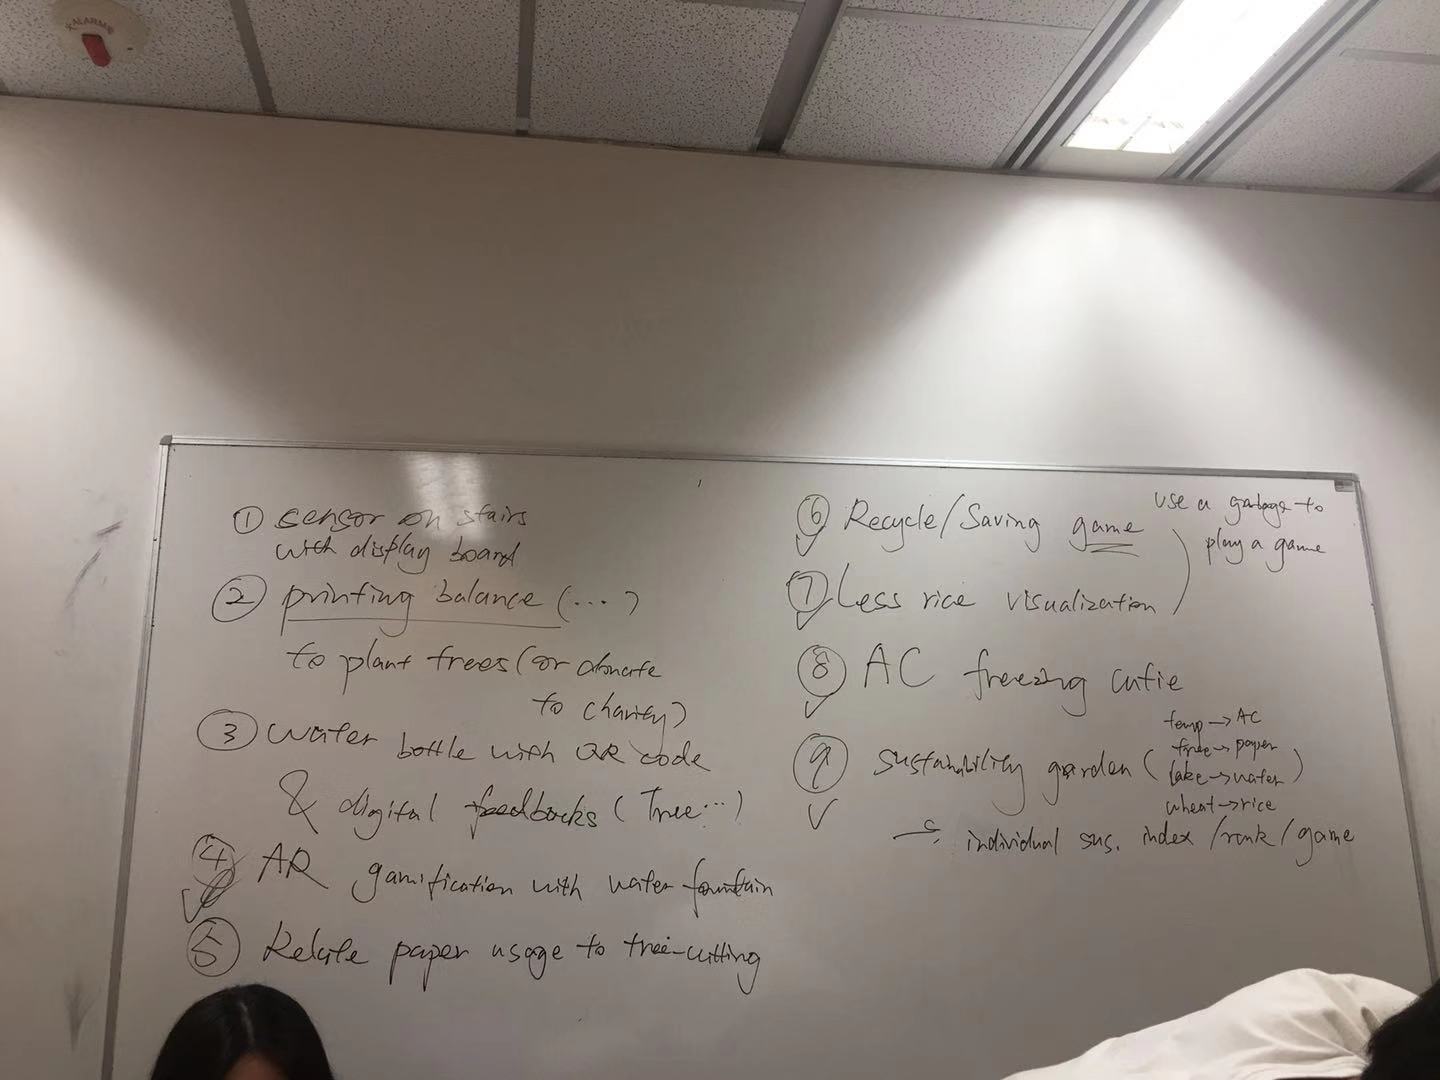 ALARM
① sensor on stairs
with display board
② printing balance (...)
to plant trees (or donate
to charity)
③ water bottle with QR code
& digital feedbacks (Tree...)
④ AR gamification with water fountain
⑤ Relate paper usage to tree-cutting
⑥ Recycle/Saving game
use a garbage to
play a game
⑦ Less rice visualization
⑧ AC freezing cutie
⑨ sustainability garden (
temp→AC
tree→paper
lake→water
wheat→rice
)
→ individual sus. index /rank/game